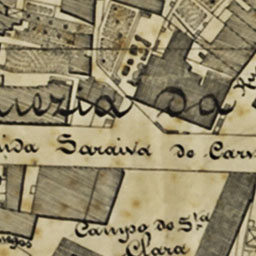 uezia da
ida Saraiva de Carv
Campo de Sta
Clara